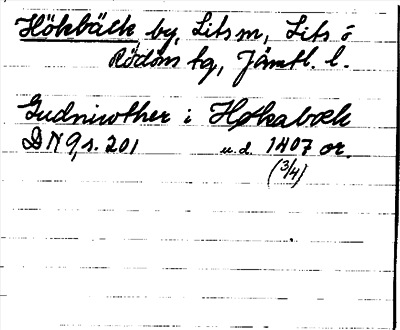 Hökbäck by, Lits sn, Lits o
Rödöns tg, Jämtl. l.
Gudniuther i Høkabæk
DN 9, s. 201 u.d. 1407 or.
(3/4)